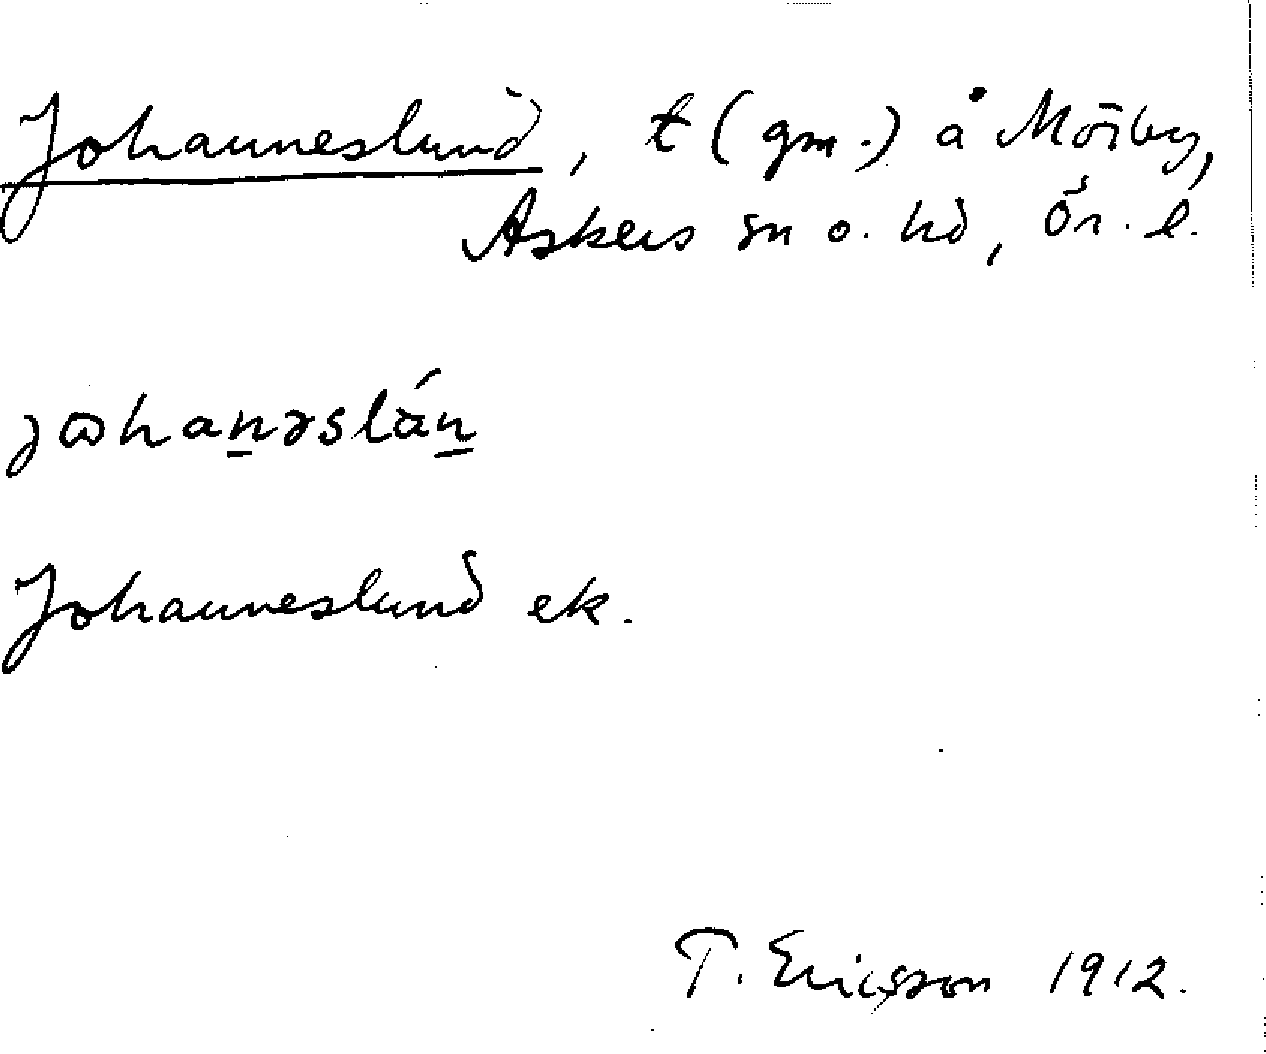 Johanneslund, t (gm.) å Mörby,
Askers sn o. hd, Ör. l.
jωhan̲əslán̲
Johanneslund ek.
T. Ericsson 1912.